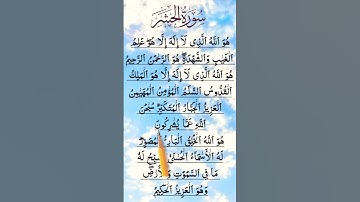 سُورَةُ الْحَشْرِ
هُوَ اللّٰهُ الَّذِي لَآ إِلٰهَ إِلَّا هُوَ عٰلِمُ
الْغَيْبِ وَالشَّهٰدَةِ هُوَ الرَّحْمٰنُ الرَّحِيْمُ
هُوَ اللّٰهُ الَّذِي لَآ إِلٰهَ إِلَّا هُوَ الْمَلِكُ
الْقُدُّوسُ السَّلٰمُ الْمُؤْمِنُ الْمُهَيْمِنُ
الْعَزِيزُ الْجَبَّارُ الْمُتَكَبِّرُ سُبْحٰنَ
اللّٰهِ عَمَّا يُشْرِكُونَ
هُوَ اللّٰهُ الْخٰلِقُ الْبَارِئُ الْمُصَوِّرُ
لَهُ الْأَسْمَآءُ الْحُسْنٰى يُسَبِّحُ لَهُ
مَا فِي السَّمٰوٰتِ وَالْأَرْضِ
وَهُوَ الْعَزِيزُ الْحَكِيْمُ